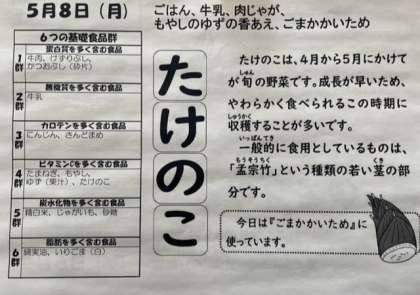 5月8日（月）
ごはん、牛乳、肉じゃが、
もやしのゆずの香あえ、ごまかかいため
6つの基礎食品群
1群
蛋白質を多く含む食品
牛肉、けずりぶし、
かつおぶし（砕片）
2群
無機質を多く含む食品
牛乳
3群
カロテンを多く含む食品
にんじん、さんどまめ
4群
ビタミンCを多く含む食品
たまねぎ、もやし、
ゆず（果汁）、たけのこ
5群
炭水化物を多く含む食品
精白米、じゃがいも、砂糖
6群
脂肪を多く含む食品
綿実油、いりごま（白）
たけのこ
たけのこは、4月から5月にかけて
が旬の野菜です。成長が早いため、
しゅん
やわらかく食べられるこの時期に
収穫することが多いです。
しゅうかく
一般的に食用としているものは、
いっぱんてき
「孟宗竹」という種類の若い茎の部
もうそうちく
くき
分です。
今日は『ごまかかいため』に
使っています。